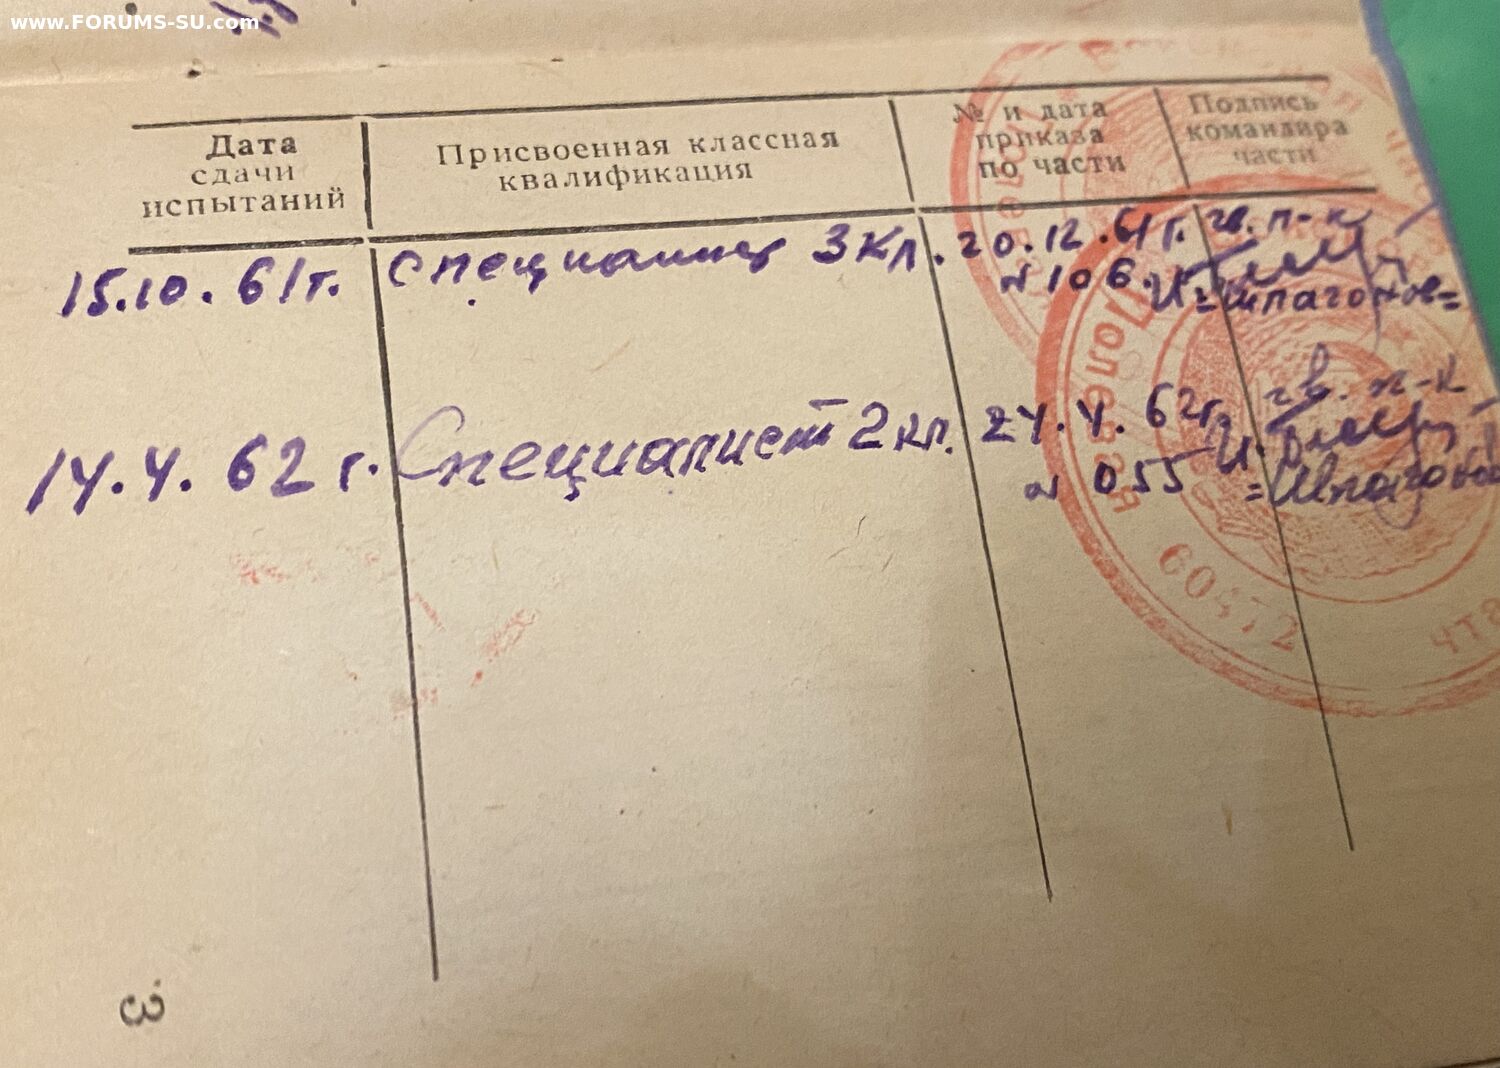 www.FORUMS-SU.com
Дата
сдачи
испытаний
Присвоенная классная
квалификация
№ и дата
приказа
по части
Подпись
командира
части
15.10.61г.
Специалист 3 кл.
20.12.61г.
№ 106.
гв. п-к
=Шпагонов=
14.4.62 г.
Специалист 2 кл.
24.4.62г.
№ 055
гв. п-к
Полевая
60472
3